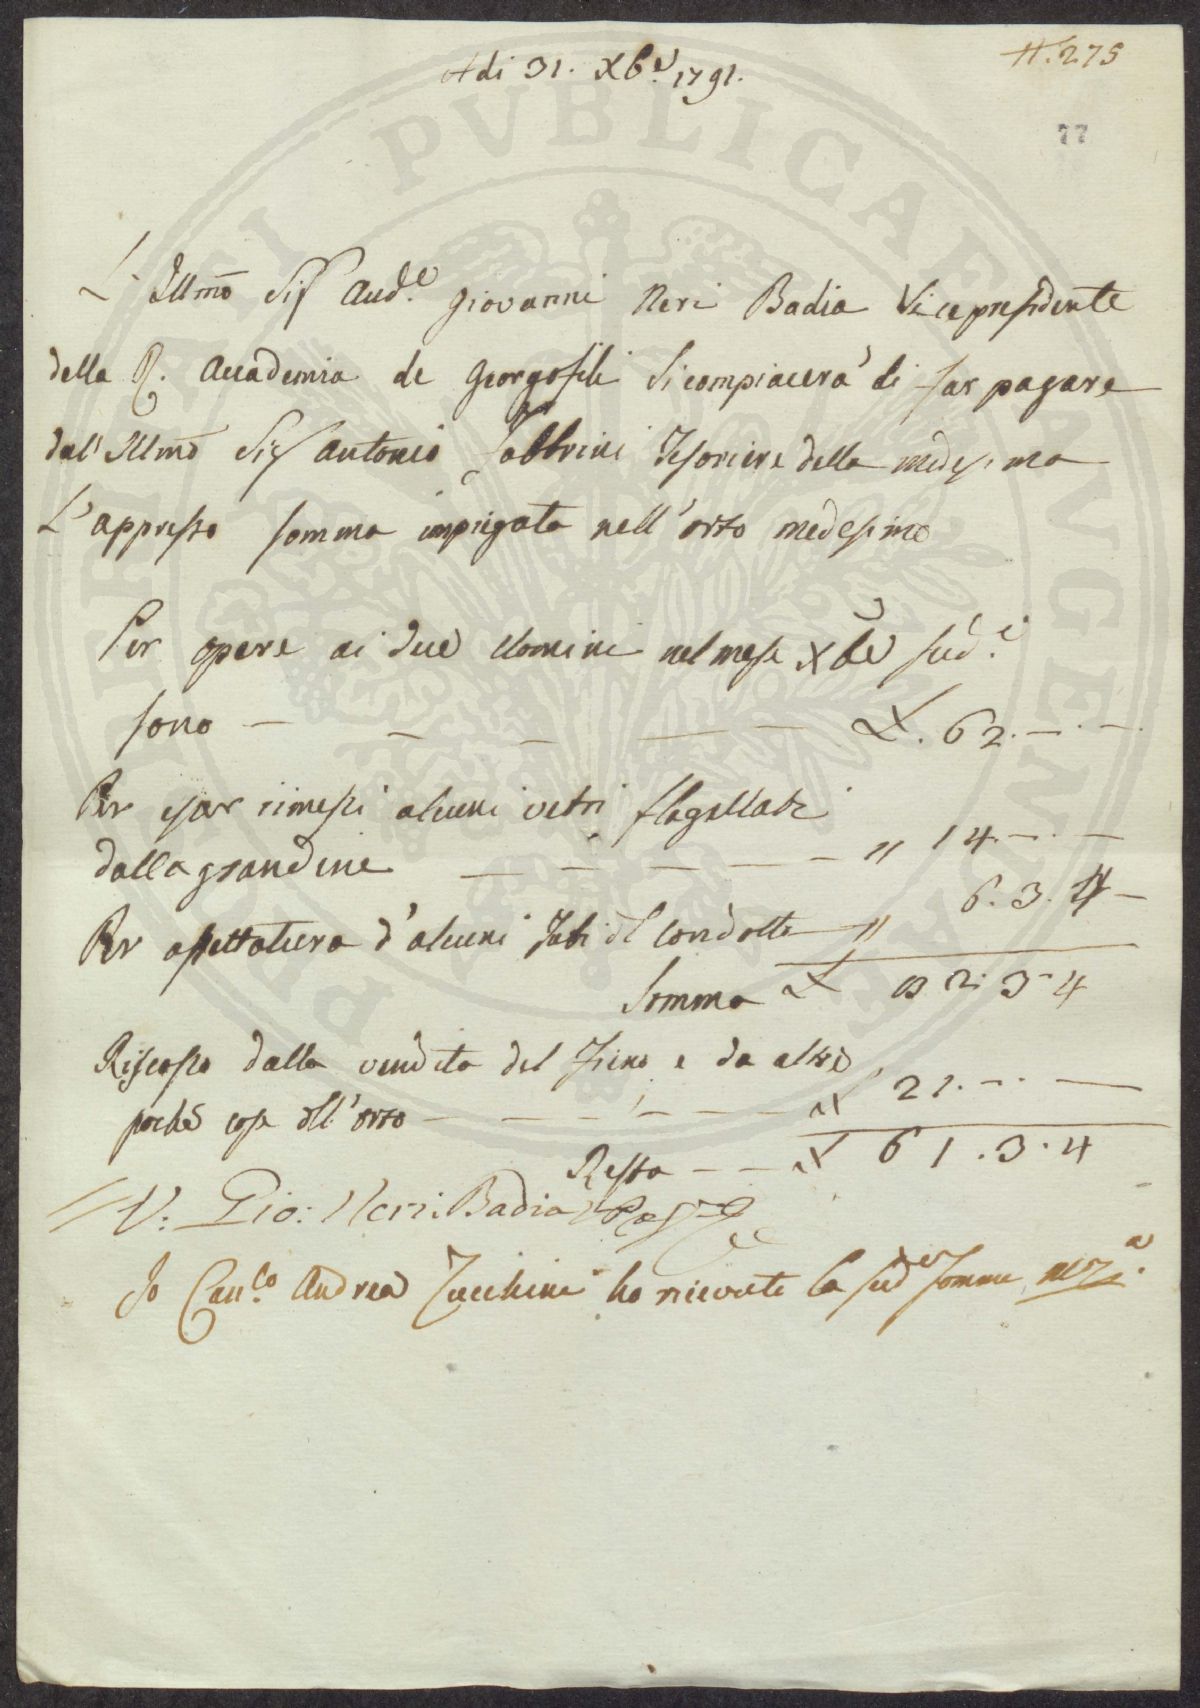 N. 275
Adi 31. Xbre 1791.
77
L'Illmo Sig Aud.e Giovanni Neri Badia Vicepresidente
della R. Accademia de Georgofili Si compiacerà di far pagare
dal' Illmo Sig Antonio Fabbrini Tesoriere della medesima
L'appresso somma impiegata nell'orto medesimo
Per opere ai due Uomini nel mese Xbre sud.e
sono — — — — — £. 62. — . —
Per far rimessi alcuni vetri flagellati
dalla grandine — — — — — " 14. — . —
Per assettatura d'alcuni Tubi di condotte — " 6. 3. 4 —
Somma £ 82. 3. 4
Riscosso dalla vendita del Fieno e da altre
poche cose dell'orto — — — — — £ 21. — . —
Resta — — £ 61. 3. 4
V: Gio: Neri Badia
Io Can.co Andrea Zucchini ho ricevute la sud.a somma
PUBLICAE